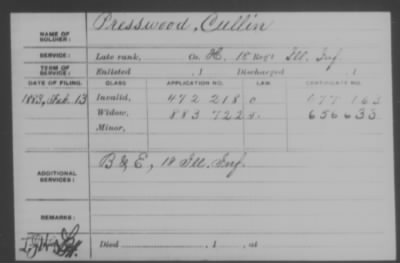 NAME OF SOLDIER: Presswood, Cullin
SERVICE: Late rank, Co. H, 18 Reg't Ill. Inf.
TERM OF SERVICE: Enlisted , 1 Discharged , 1
DATE OF FILING. CLASS APPLICATION NO. LAW. CERTIFICATE NO.
1883, Feb. 13 Invalid, 472 218 177 163
Widow, 883 722 656 633
Minor,
ADDITIONAL SERVICES: B & E, 18 Ill. Inf.
REMARKS:
Died , 1 , at